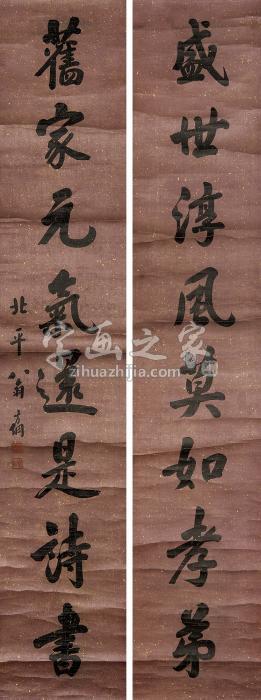 盛世淳風莫如孝弟
舊家元氣還是詩書
北平翁方綱
字画之家
zihuazhijia.com